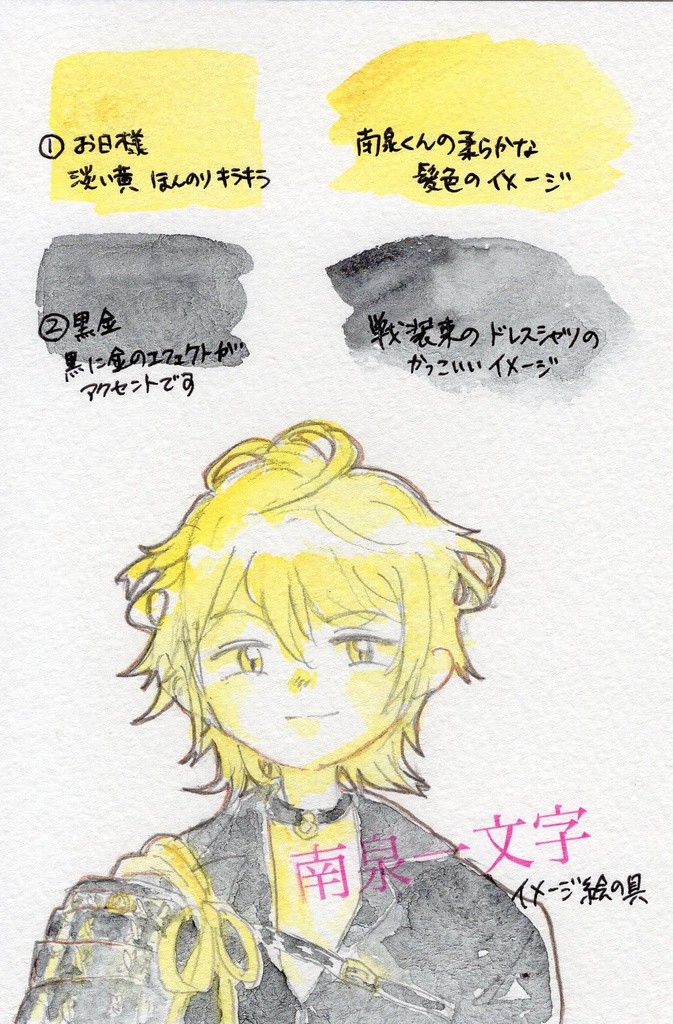 ① お日様
淡い黄 ほんのりキラキラ
南泉くんの柔らかな
髪色のイメージ
② 黒金
黒に金のエフェクトが
アクセントです
戦装束のドレスシャツの
かっこいいイメージ
南泉一文字
イメージ絵の具